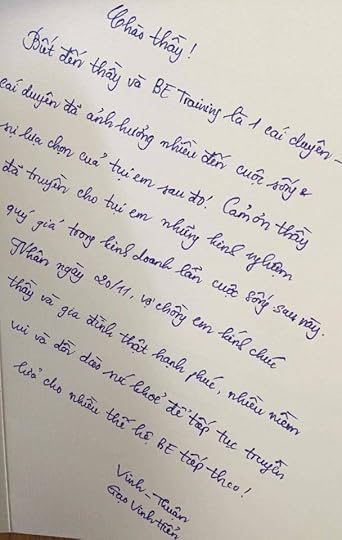 Chào thầy!
Biết đến thầy và BE Training là 1 cái duyên -
cái duyên đã ảnh hưởng nhiều đến cuộc sống &
sự lựa chọn của tụi em sau đó! Cảm ơn thầy
đã truyền cho tụi em những kinh nghiệm
quý giá trong kinh doanh lẫn cuộc sống sau này.
Nhân ngày 20/11, vợ chồng em kính chúc
thầy và gia đình thật hạnh phúc, nhiều niềm
vui và dồi dào sức khoẻ để tiếp tục truyền
lửa cho nhiều thế hệ BE tiếp theo!
Vinh - Thuân
Gạo Vinh Hiển